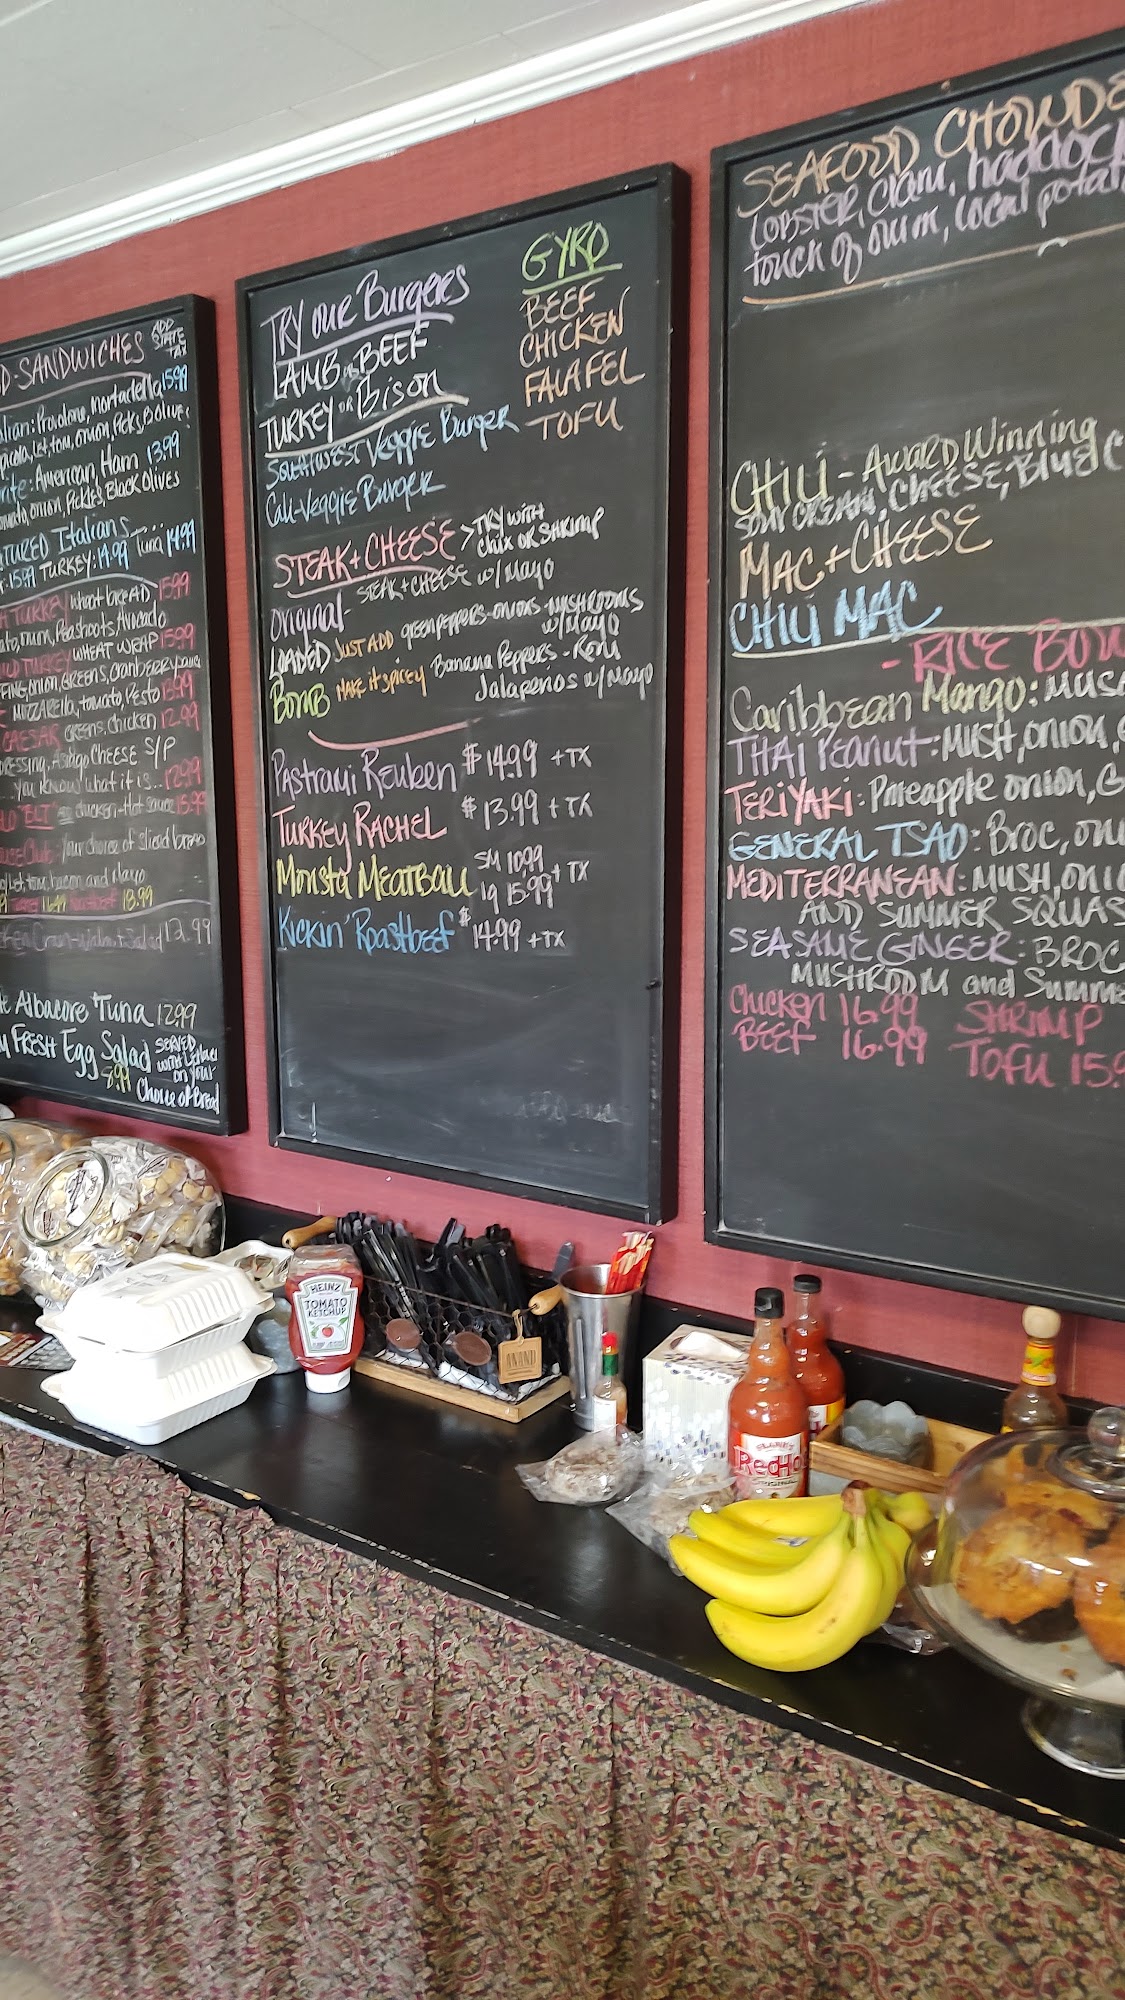 D-SANDWICHES ADD STATE TAX
Italian: Provolone, Mortadella 15.99
picola, Let, tom, onion, Picks, B.Olive
American Ham 13.99
tomato, onion, Pickles, Black Olives
TURED Italians
15.99 TURKEY: 14.99 Tuna 14.99
TURKEY wheat bread 15.99
Peashoots/Avocado
TURKEY WHEAT WRAP 15.99
onion, greens, cranberry
MOZZARELLA, tomato, Pesto 13.99
CAESAR greens, chicken 12.99
Asiago CHEESE S/P
...you know what it is... 12.99
"ELT" chicken-Hot sauce 15.99
Club- Your choice of sliced bread
Let, tom, bacon and Mayo
18.99
Salad 12.99
Albacore Tuna 12.99
FRESH Egg Salad 8.99
SERVED
with Lettuce
on your
Choice of Bread
TRY our Burgers
LAMB or BEEF
TURKEY or Bison
Southwest Veggie Burger
Cali-Veggie Burger
GYRO
BEEF
CHICKEN
FALAFEL
TOFU
STEAK+CHEESE > TRY with
chix or SHRIMP
Original - STEAK+CHEESE w/ Mayo
LOADED JUST ADD green peppers-onions-MUSHROOMS
w/Mayo
BOMB MAKE it spicy Banana Peppers -
Jalapeños w/Mayo
Pastrami Reuben $14.99 +TX
TURKEY RACHEL $13.99 +TX
Monsta MEATBALL SM 10.99
lg 15.99 +TX
Kickin' Roastbeef $14.99 +TX
SEAFOOD CHOWDE
LOBSTER, Clam, haddock
touch of rum, local potat
CHILI - AWARD Winning
SOUR CREAM, CHEESE, Blue C
MAC+CHEESE
CHILI MAC
- RICE BOW
Caribbean Mango: MUSH
THAI Peanut: MUSH, onion,
TERIYAKI: Pineapple onion, G
GENERAL TSAO: Broc, oni
MEDITERRANEAN: MUSH, onio
AND SUMMER SQUAS
SEASAME GINGER: BROC
MUSHROOM and Summe
Chicken 16.99 SHRIMP
BEEF 16.99 TOFU 15.9
HEINZ
TOMATO
KETCHUP
ANAND
FRANK'S
RedHot